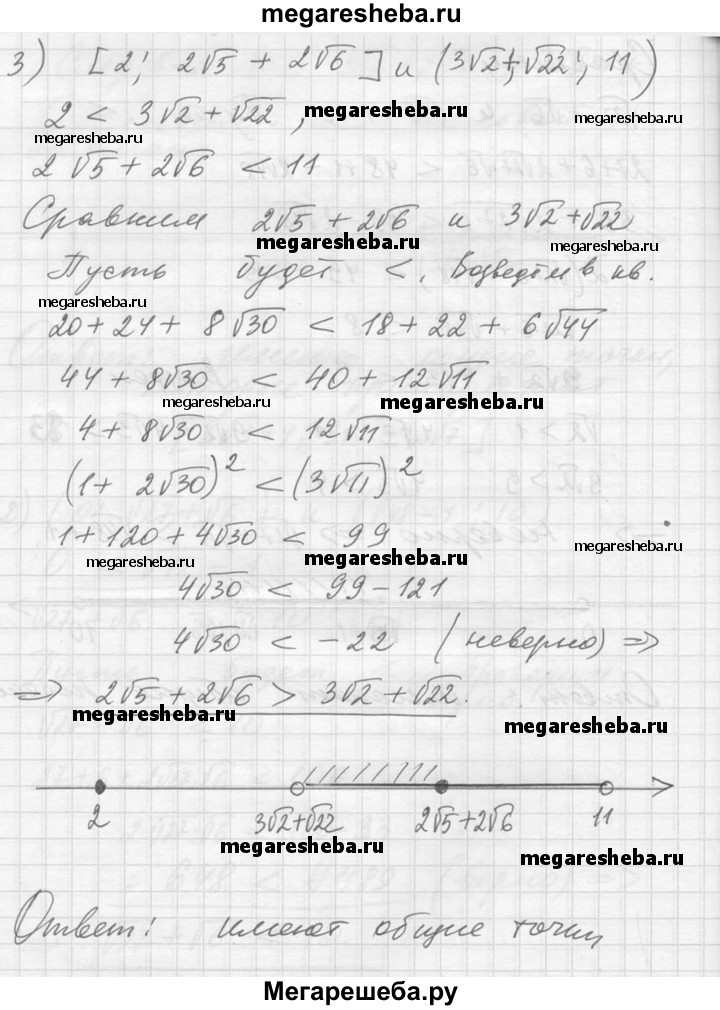 megaresheba.ru
3) [2; 2√5 + 2√6] и (3√2+√22; 11)
2 < 3√2 + √22, megaresheba.ru
megaresheba.ru
2√5 + 2√6 < 11
Сравним 2√5 + 2√6 и 3√2+√22
megaresheba.ru megaresheba.ru
Пусть будет <. Возведём в кв.
megaresheba.ru
20 + 24 + 8√30 < 18 + 22 + 6√44
44 + 8√30 < 40 + 12√11
megaresheba.ru megaresheba.ru
4 + 8√30 < 12√11
(1 + 2√30)² < (3√11)²
1 + 120 + 4√30 < 99
megaresheba.ru megaresheba.ru megaresheba.ru
4√30 < 99 - 121
4√30 < -22 (неверно) =>
=> 2√5 + 2√6 > 3√2 + √22.
megaresheba.ru megaresheba.ru
2 3√2+√22 2√5+2√6 11
megaresheba.ru megaresheba.ru
Ответ: имеют общие точки
Мегарешеба.ру